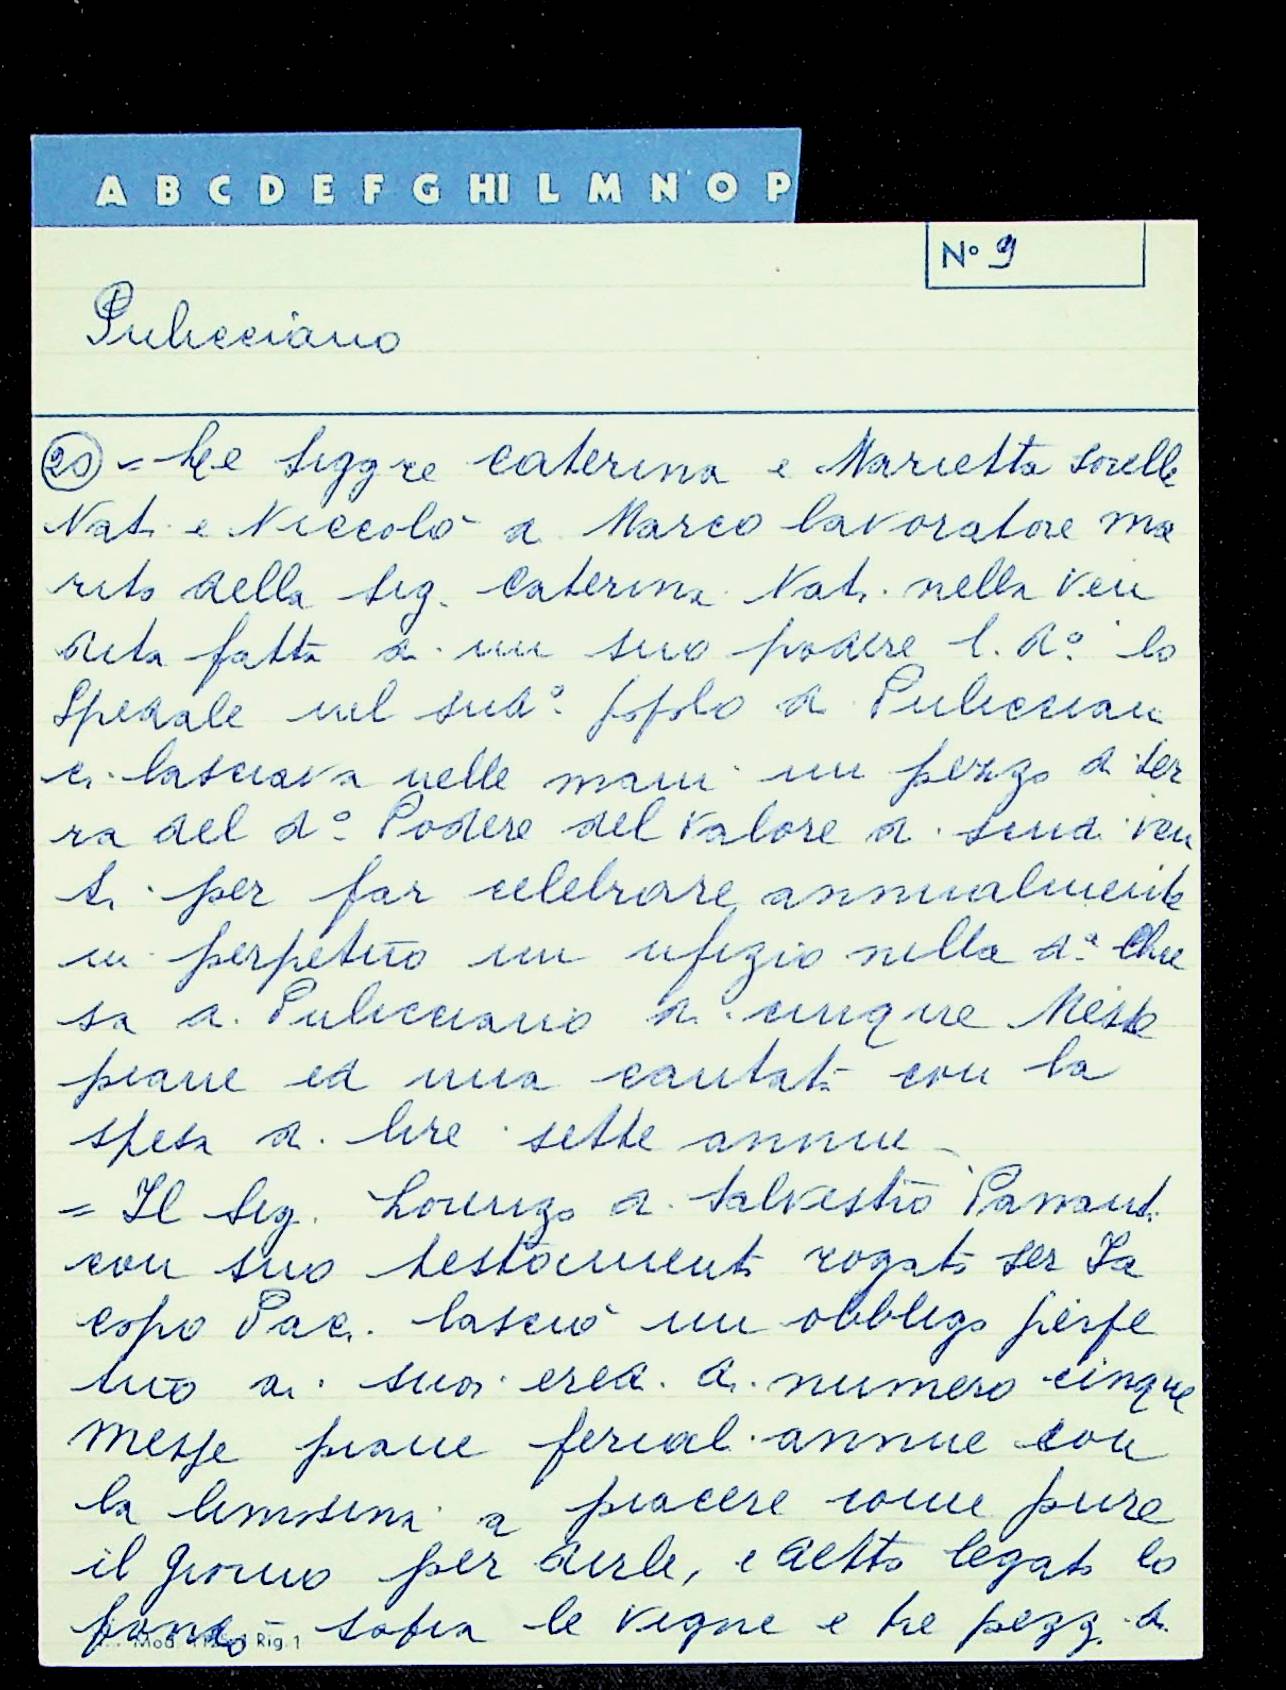 A B C D E F G HI L M N O P
N° 9
Pulicciano
20 = Le Siggre Caterina e Marietta sorelle
Nati e Niccolò di Marco lavoratore ma
rito della Sig. Caterina Nati nella ven
dita fatta di un suo podere l. d.° lo
Spedale nel sud.° popolo di Pulician
ci lasciava nelle mani un pezzo di ter
ra del d.° Podere del valore di scudi ven
ti per far celebrare annualmente
in perpetuo un ufizio nella d.a Chie
sa di Pulicciano di cinque Messe
piane ed una cantata con la
spesa di lire sette annue
= Il Sig. Lorenzo di Salvestro
con suo testamento rogato ser Ia
copo Paci lasciò un obbligo perpe
tuo ai suoi eredi di numero cinque
messe piane feriali annue con
la limosina a piacere come pure
il giorno per dirle, e detto legato lo
fondò sopra le vigne e tre pezzi di
Mod. Rig. 1